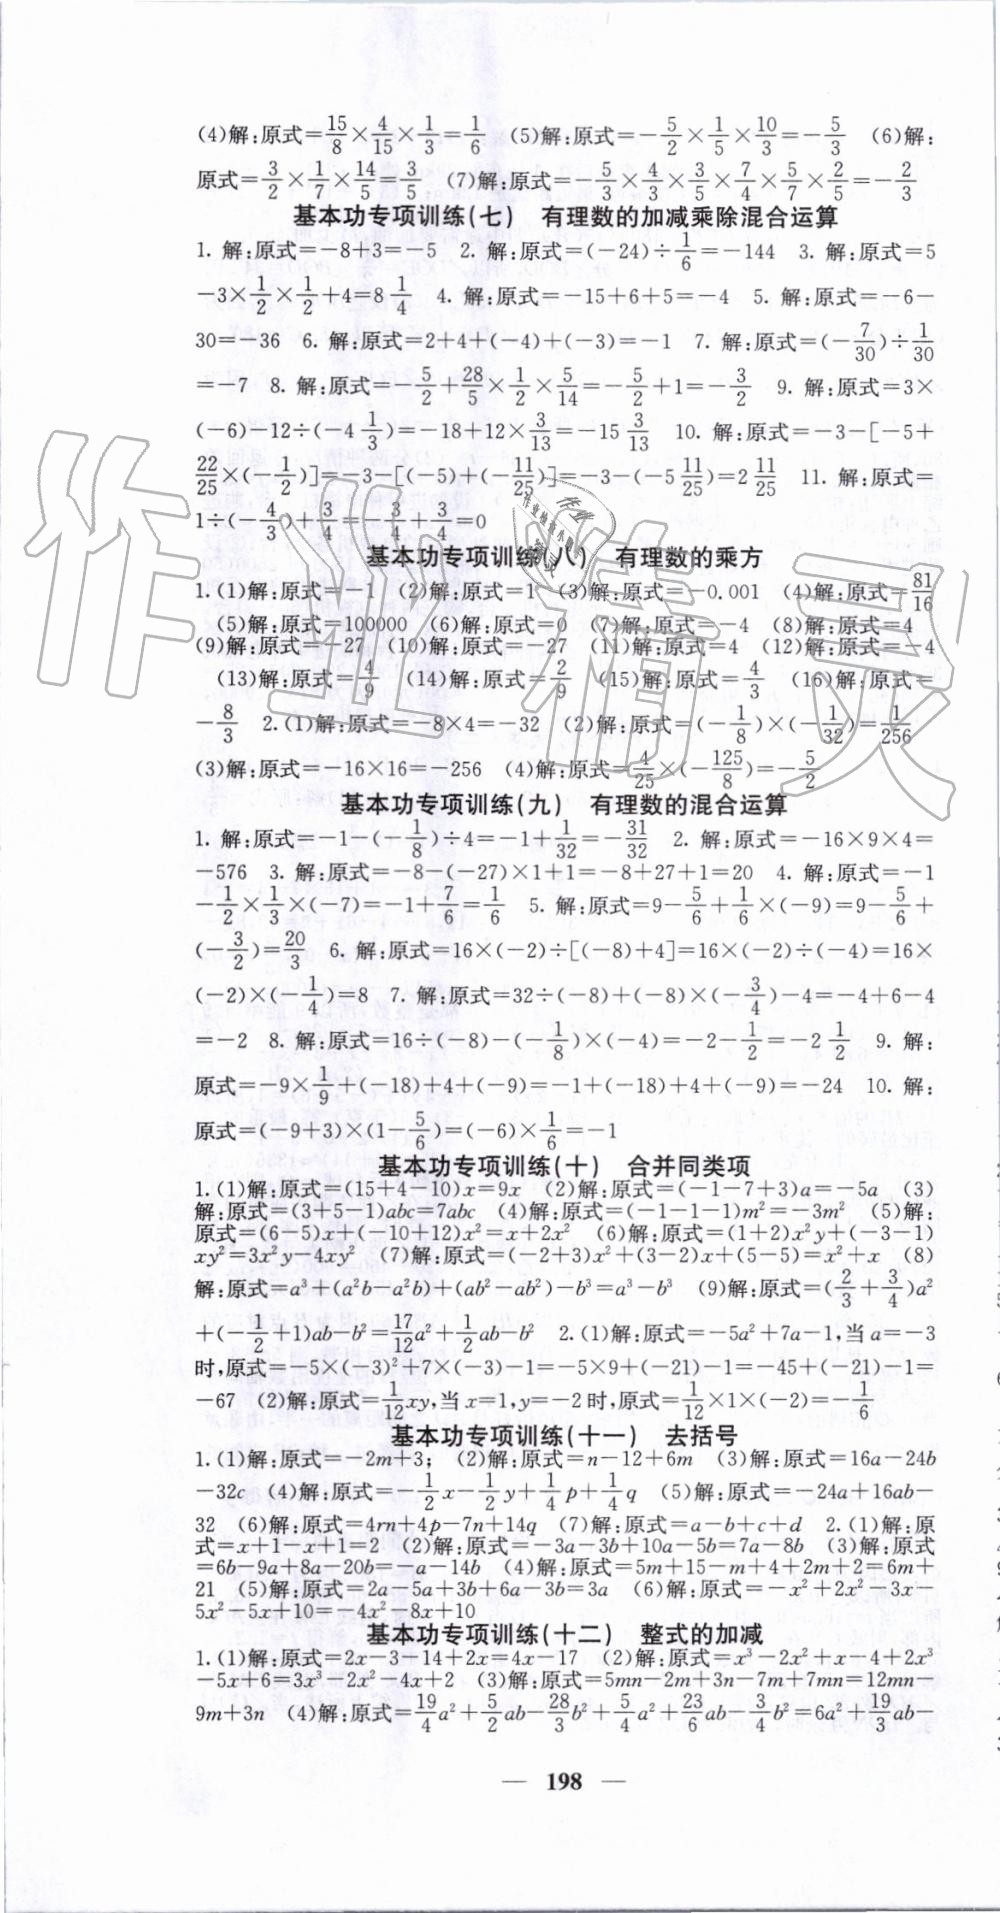 (4)解:原式=15/8×4/15×1/3=1/6 (5)解:原式=-5/2×1/5×10/3=-5/3 (6)解:
原式=3/2×1/7×14/5=3/5 (7)解:原式=-5/3×4/3×3/5×7/4×5/7×2/5=-2/3
基本功专项训练(七) 有理数的加减乘除混合运算
1. 解:原式=-8+3=-5 2. 解:原式=(-24)÷1/6=-144 3. 解:原式=5
-3×1/2×1/2+4=8 1/4 4. 解:原式=-15+6+5=-4 5. 解:原式=-6-
30=-36 6. 解:原式=2+4+(-4)+(-3)=-1 7. 解:原式=(-7/30)÷1/30
=-7 8. 解:原式=-5/2+28/5×1/2×5/14=-5/2+1=-3/2 9. 解:原式=3×
(-6)-12÷(-4 1/3)=-18+12×3/13=-15 3/13 10. 解:原式=-3-[-5+
22/25×(-1/2)]=-3-[(-5)+(-11/25)]=-3-(-5 11/25)=2 11/25 11. 解:原式=
1÷(-4/3)+3/4=-3/4+3/4=0
基本功专项训练(八) 有理数的乘方
1.(1)解:原式=-1 (2)解:原式=1 (3)解:原式=-0.001 (4)解:原式=81/16
(5)解:原式=100000 (6)解:原式=0 (7)解:原式=-4 (8)解:原式=4
(9)解:原式=-27 (10)解:原式=-27 (11)解:原式=4 (12)解:原式=-4
(13)解:原式=4/9 (14)解:原式=2/9 (15)解:原式=4/3 (16)解:原式=
-8/3 2.(1)解:原式=-8×4=-32 (2)解:原式=(-1/8)×(-1/32)=1/256
(3)解:原式=-16×16=-256 (4)解:原式=4/25×(-125/8)=-5/2
基本功专项训练(九) 有理数的混合运算
1. 解:原式=-1-(-1/8)÷4=-1+1/32=-31/32 2. 解:原式=-16×9×4=
-576 3. 解:原式=-8-(-27)×1+1=-8+27+1=20 4. 解:原式=-1
-1/2×1/3×(-7)=-1+7/6=1/6 5. 解:原式=9-5/6+1/6×(-9)=9-5/6+
(-3/2)=20/3 6. 解:原式=16×(-2)÷[(-8)+4]=16×(-2)÷(-4)=16×
(-2)×(-1/4)=8 7. 解:原式=32÷(-8)+(-8)×(-3/4)-4=-4+6-4
=-2 8. 解:原式=16÷(-8)-(-1/8)×(-4)=-2-1/2=-2 1/2 9. 解:
原式=-9×1/9+(-18)+4+(-9)=-1+(-18)+4+(-9)=-24 10. 解:
原式=(-9+3)×(1-5/6)=(-6)×1/6=-1
基本功专项训练(十) 合并同类项
1.(1)解:原式=(15+4-10)x=9x (2)解:原式=(-1-7+3)a=-5a (3)
解:原式=(3+5-1)abc=7abc (4)解:原式=(-1-1-1)m²=-3m² (5)解:
原式=(6-5)x+(-10+12)x²=x+2x² (6)解:原式=(1+2)x²y+(-3-1)
xy²=3x²y-4xy² (7)解:原式=(-2+3)x²+(3-2)x+(5-5)=x²+x (8)
解:原式=a³+(a²b-a²b)+(ab²-ab²)-b³=a³-b³ (9)解:原式=(2/3+3/4)a²
+(-1/2+1)ab-b²=17/12a²+1/2ab-b² 2.(1)解:原式=-5a²+7a-1,当a=-3
时,原式=-5×(-3)²+7×(-3)-1=-5×9+(-21)-1=-45+(-21)-1=
-67 (2)解:原式=1/12xy,当x=1,y=-2时,原式=1/12×1×(-2)=-1/6
基本功专项训练(十一) 去括号
1.(1)解:原式=-2m+3; (2)解:原式=n-12+6m (3)解:原式=16a-24b
-32c (4)解:原式=-1/2x-1/2y+1/4p+1/4q (5)解:原式=-24a+16ab-
32 (6)解:原式=4rn+4p-7n+14q (7)解:原式=a-b+c+d 2.(1)解:原
式=x+1-x+1=2 (2)解:原式=-3a-3b+10a-5b=7a-8b (3)解:原式
=6b-9a+8a-20b=-a-14b (4)解:原式=5m+15-m+4+2m+2=6m+
21 (5)解:原式=2a-5a+3b+6a-3b=3a (6)解:原式=-x²+2x²-3x-
5x²-5x+10=-4x²-8x+10
基本功专项训练(十二) 整式的加减
1.(1)解:原式=2x-3-14+2x=4x-17 (2)解:原式=x³-2x²+x-4+2x³
-5x+6=3x³-2x²-4x+2 (3)解:原式=5mn-2m+3n-7m+7mn=12mn-
9m+3n (4)解:原式=19/4a²+5/2ab-28/3b²+5/4a²+23/6ab-3/4b²=6a²+19/3ab-
— 198 —
作业精灵